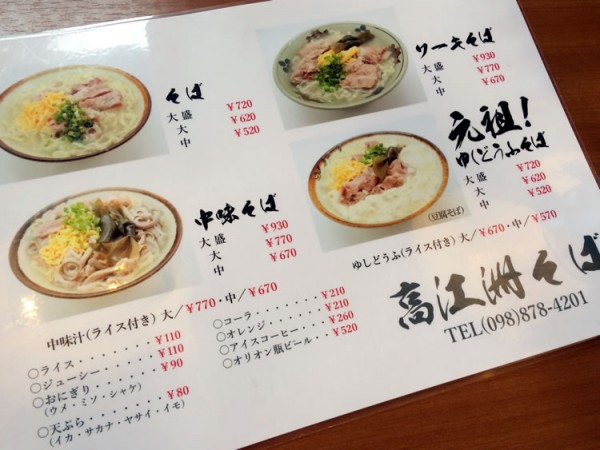 そば
大盛 ¥720
大 ¥620
中 ¥520
ソーキそば
大盛 ¥930
大 ¥770
中 ¥670
中味そば
大盛 ¥930
大 ¥770
中 ¥670
元祖!
ゆしどうふそば
大盛 ¥720
大 ¥620
中 ¥520
(豆腐そば)
ゆしどうふ(ライス付き) 大/¥670・中/¥570
中味汁(ライス付き) 大/¥770・中/¥670
○ライス・・・・・・・¥110
○ジューシー・・・・・¥110
○おにぎり・・・・・・¥90
(ウメ・ミソ・シャケ)
○天ぷら・・・・・・・¥80
(イカ・サカナ・ヤサイ・イモ)
○コーラ・・・・・・・¥210
○オレンジ・・・・・・¥210
○アイスコーヒー・・・¥260
○オリオン瓶ビール・・¥520
高江洲そば
TEL(098)878-4201